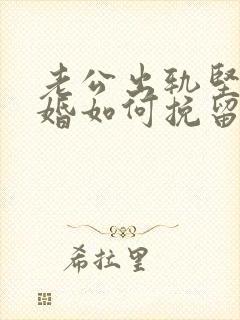 老公出轨坚
婚如何挽留
希拉里